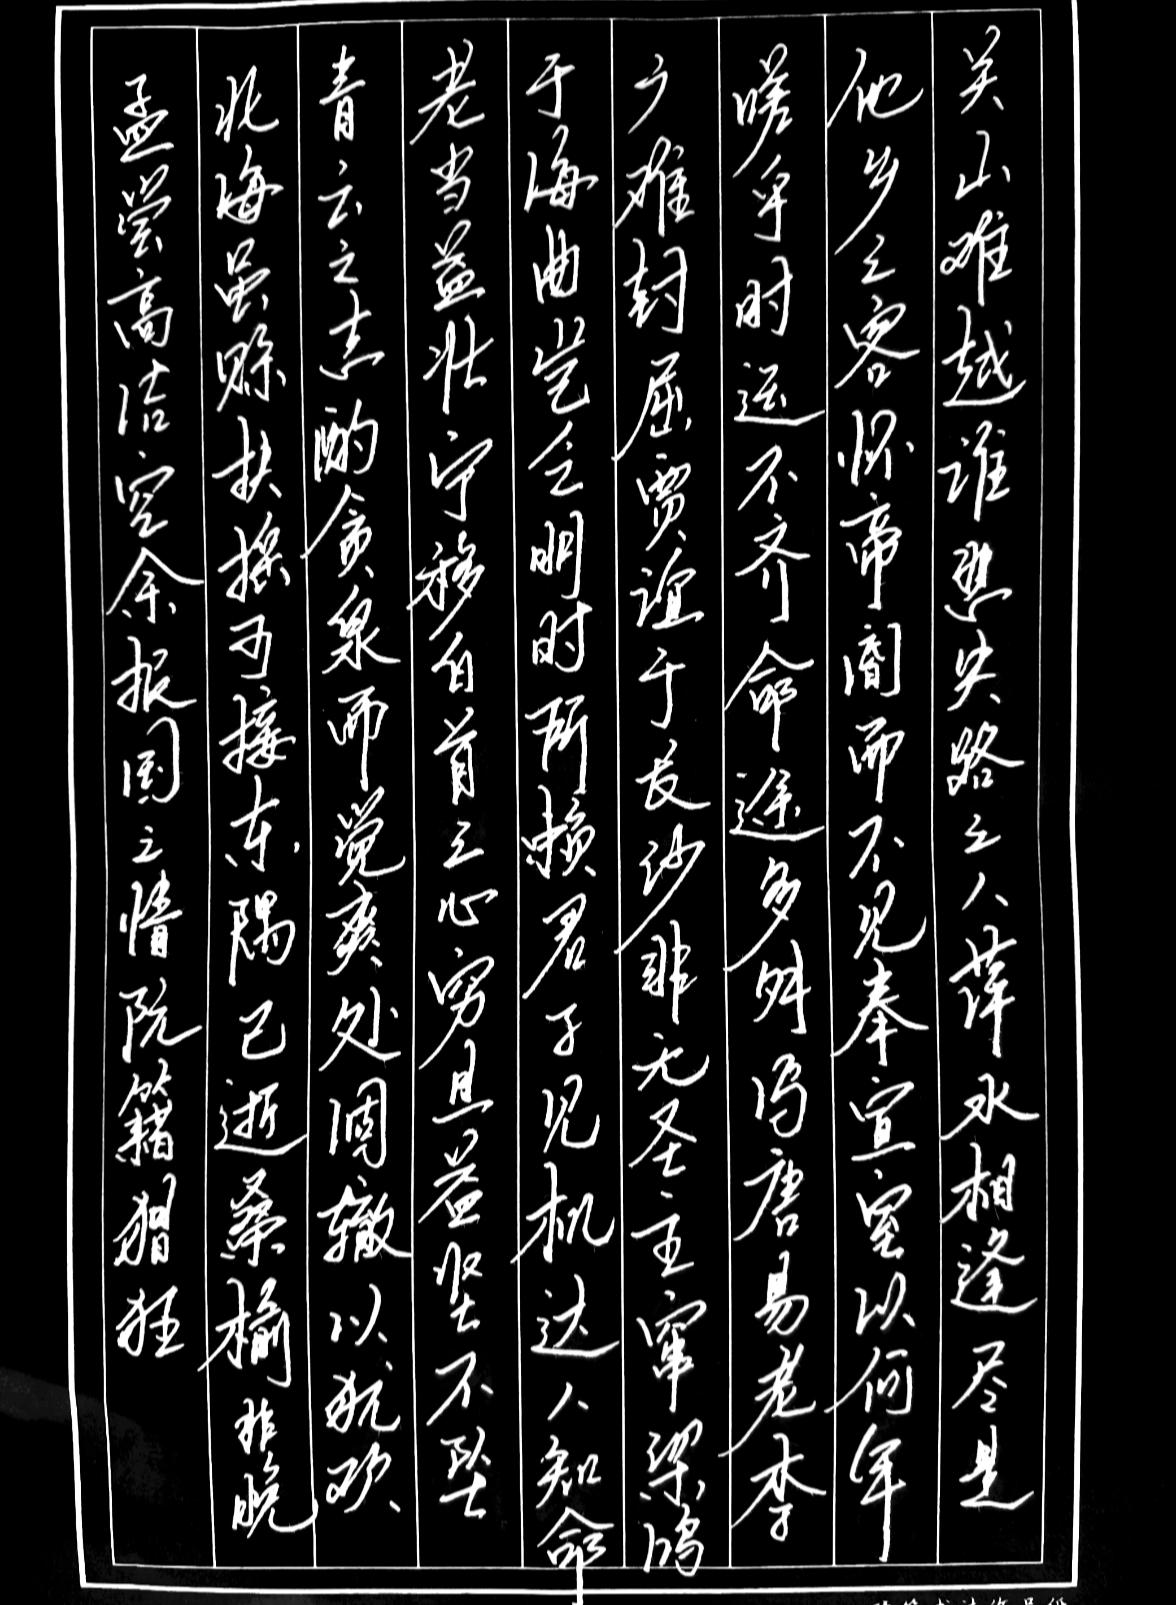 关山难越谁悲失路之人萍水相逢尽是
他乡之客怀帝阍而不见奉宣室以何年
嗟乎时运不齐命途多舛冯唐易老李
广难封屈贾谊于长沙非无圣主窜梁鸿
于海曲岂乏明时所赖君子见机达人知命
老当益壮宁移白首之心穷且益坚不坠
青云之志酌贪泉而觉爽处涸辙以犹欢
北海虽赊扶摇可接东隅已逝桑榆非晚
孟尝高洁空余报国之情阮籍猖狂